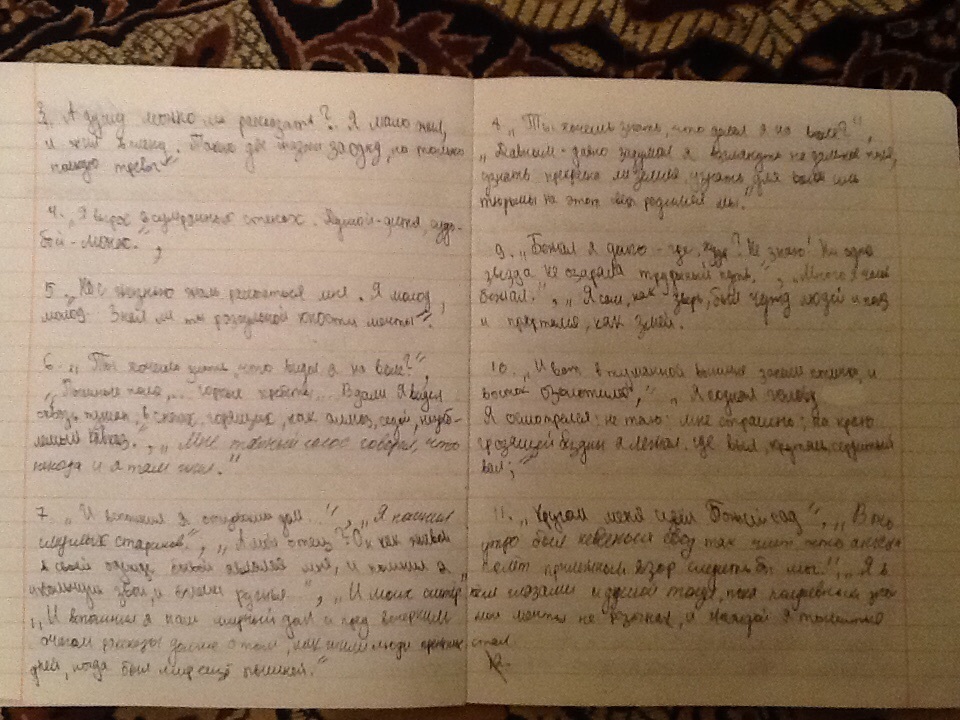 3. „А душу можно ль рассказать?". Я мало жил,
и жил в плену. Таких две жизни за одну, но только
полную тревог"
4. „Я вырос в сумрачных стенах. Душой-дитя, судь-
бой - монах.",
5. „Нет
молод. Знал ли ты разгульной юности мечты".
6. „Ты хочешь знать, что видел я на воле?",
„Пышные поля,... горные хребты... Вдали я видел
сквозь туман, в снегах, горящих, как алмаз, седой, незыб-
лемый Кавказ.", „Мне тайный голос говорил, что
некогда и я там жил."
7. „И вспомнил я отцовский дом...", „Я помнил
смуглых стариков", „А мой отец? Он как живой
в своей одежде боевой являлся мне, и помнил я
кольчуги звон, и блеск ружья", „И моих сестёр",
„И вспомнил я наш мирный дом и пред вечерним
очагом рассказы долгие о том, как жили люди прежних
дней, когда был мир ещё пышней."
8. „Ты хочешь знать, что делал я на воле?",
„Давным-давно задумал я взглянуть на дальние поля,
узнать прекрасна ли земля, узнать, для воли иль
тюрьмы на этот свет родимся мы."
9. „Бежал я долго - где, куда? Не знаю! Ни одна
звезда не озаряла трудный путь.", „Много я часов
бежал.", „Я сам, как зверь, был чужд людей и полз
и прятался, как змей.
10. „И вот в туманной вышине запели птички, и
восток озолотился", „Я поднял голову
Я осмотрелся; не таю: мне страшно; на краю
грозящей бездны я лежал. где выл, крутясь, сердитый
вал;"
11. „Кругом меня цвёл Божий сад", „В то
утро был небесный свод так чист, что ангела
полёт прилежный взор следить бы мог.", „Я в
нём глазами и душой тонул, пока полдневный зной
мои мечты не разогнал, и жаждой я томиться
стал.